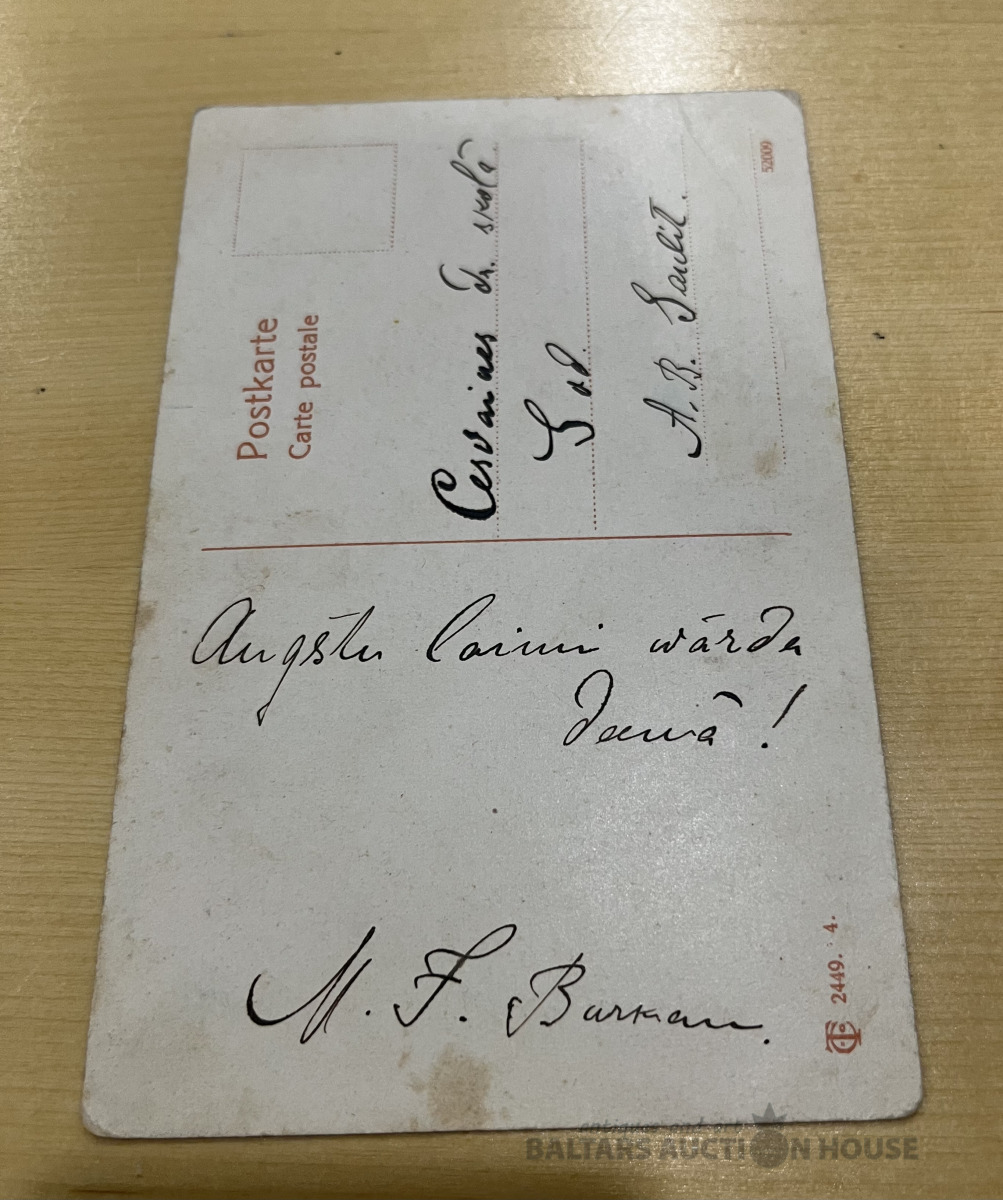 Postkarte
Carte postale
Cesvaines dr. skolā
God.
A. B. Saulīt.
52009
Augštu laimi wārda
deenā!
M. F. Barkan.
2449. 4.
BALTARS AUCTION HOUSE